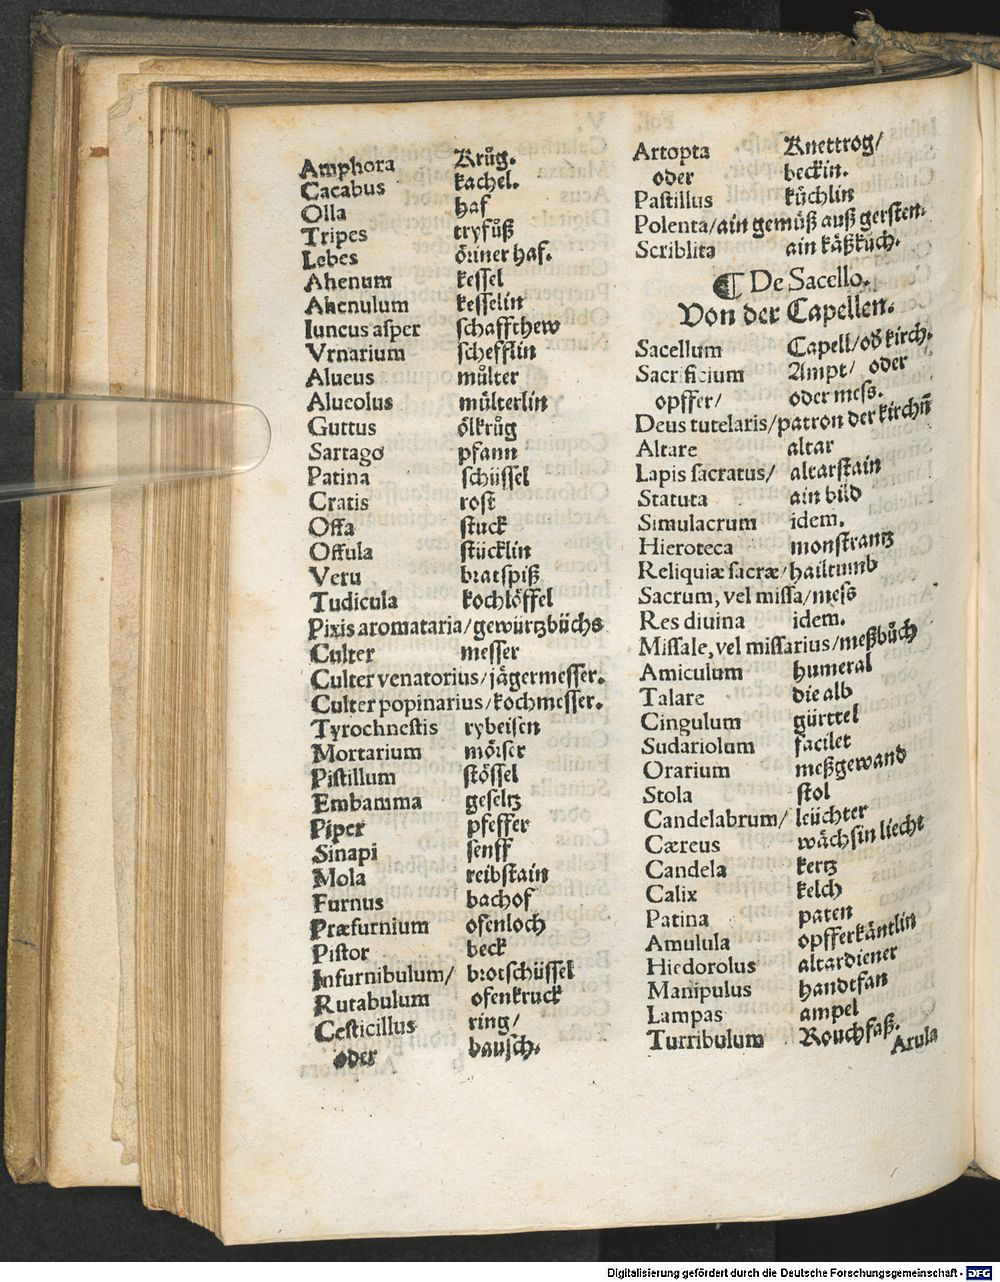 Amphora Krůg.
Cacabus kachel.
Olla haf
Tripes tryfůß
Lebes öriner haf.
Ahenum kessel
Ahenulum kesselin
Iuncus asper schaffthew
Vrnarium schefflin
Alueus můlter
Alueolus můlterlin
Guttus ölkrůg
Sartago pfann
Patina schüssel
Cratis rost
Offa stuck
Offula stücklin
Veru bratspiß
Tudicula kochlöffel
Pixis aromataria/gewürtzbüchs
Culter messer
Culter venatorius/jägermesser.
Culter popinarius/kochmesser.
Tyrochnestis rybeisen
Mortarium mörser
Pistillum stössel
Embamma geseltz
Piper pfeffer
Sinapi senff
Mola reibstain
Furnus bachof
Præfurnium ofenloch
Pistor beck
Infurnibulum/ brotschüssel
Rutabulum ofenkruck
Cesticillus ring/
oder bausch.
Artopta Knettrog/
oder beckin.
Pastillus kůchlin
Polenta/ain gemůß auß gersten.
Scriblita ain käßkůch.
¶ De Sacello.
Von der Capellen.
Sacellum Capell/oď kirch.
Sacrificium Ampt/ oder
opffer/ oder mess.
Deus tutelaris/patron der kirchñ
Altare altar
Lapis sacratus/ altarstain
Statuta ain bild
Simulacrum idem.
Hieroteca monstrantz
Reliquiæ sacræ/hailtumb
Sacrum, vel missa/mess
Res diuina idem.
Missale, vel missarius/meßbůch
Amiculum humeral
Talare die alb
Cingulum gürttel
Sudariolum facilet
Orarium meßgewand
Stola stol
Candelabrum/ leüchter
Cæreus wächsin liecht
Candela kertz
Calix kelch
Patina paten
Amulula opfferkäntlin
Hiedorolus altardiener
Manipulus handtfan
Lampas ampel
Turribulum Rouchfaß.
Arula
Digitalisierung gefördert durch die Deutsche Forschungsgemeinschaft - DFG